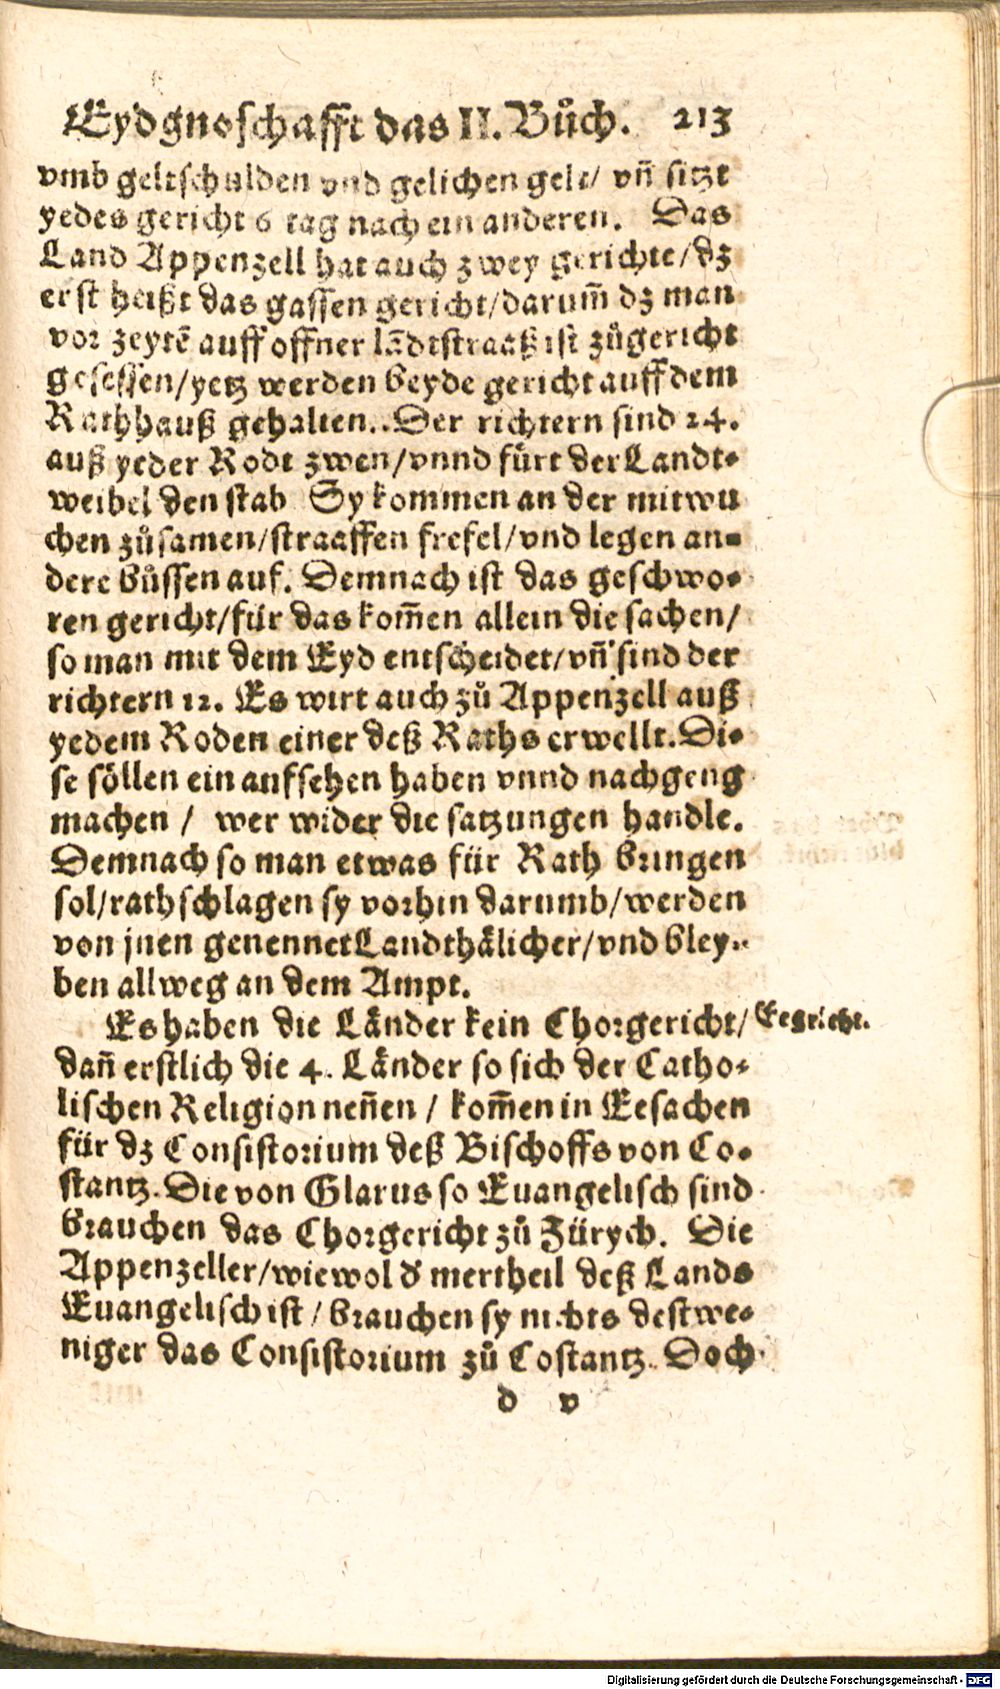 Eydgnoschafft das II. Bůch. 213
vmb geltschulden vnd gelichen gelt/ vñ sitzt
yedes gericht 6 tag nach ein anderen. Das
Land Appenzell hat auch zwey gerichte/dz
erst heißt das gassen gericht/darum̃ dz man
vor zeytẽ auff offner lãdtstraaß ist zůgericht
gesessen/yetz werden beyde gericht auff dem
Rathhauß gehalten. Der richtern sind 24.
auß yeder Rodt zwen/vnnd fürt der Landt-
weibel den stab Sy kommen an der mitwu
chen zůsamen/straaffen frefel/vnd legen an-
dere bůssen auf. Demnach ist das geschwo-
ren gericht/für das kom̃en allein die sachen/
so man mit dem Eyd entscheidet/vñ sind der
richtern 12. Es wirt auch zů Appenzell auß
yedem Roden einer deß Raths erwellt. Di-
se söllen ein aufsehen haben vnnd nachgeng
machen / wer wider die satzungen handle.
Demnach so man etwas für Rath bringen
sol/rathschlagen sy vorhin darumb/werden
von jnen genennet Landthälicher/vnd bley-
ben allweg an dem Ampt.
Es haben die Länder kein Chorgericht/
Eegricht.
dañ erstlich die 4. Länder so sich der Catho-
lischen Religion neñen / kom̃en in Eesachen
für dz Consistorium deß Bischoffs von Co-
stantz. Die von Glarus so Euangelisch sind
brauchen das Chorgericht zů Zürych. Die
Appenzeller/wiewol d' mertheil deß Lands
Euangelisch ist / brauchen sy nichts destwe-
niger das Consistorium zů Costantz. Doch
d v
Digitalisierung gefördert durch die Deutsche Forschungsgemeinschaft - DFG